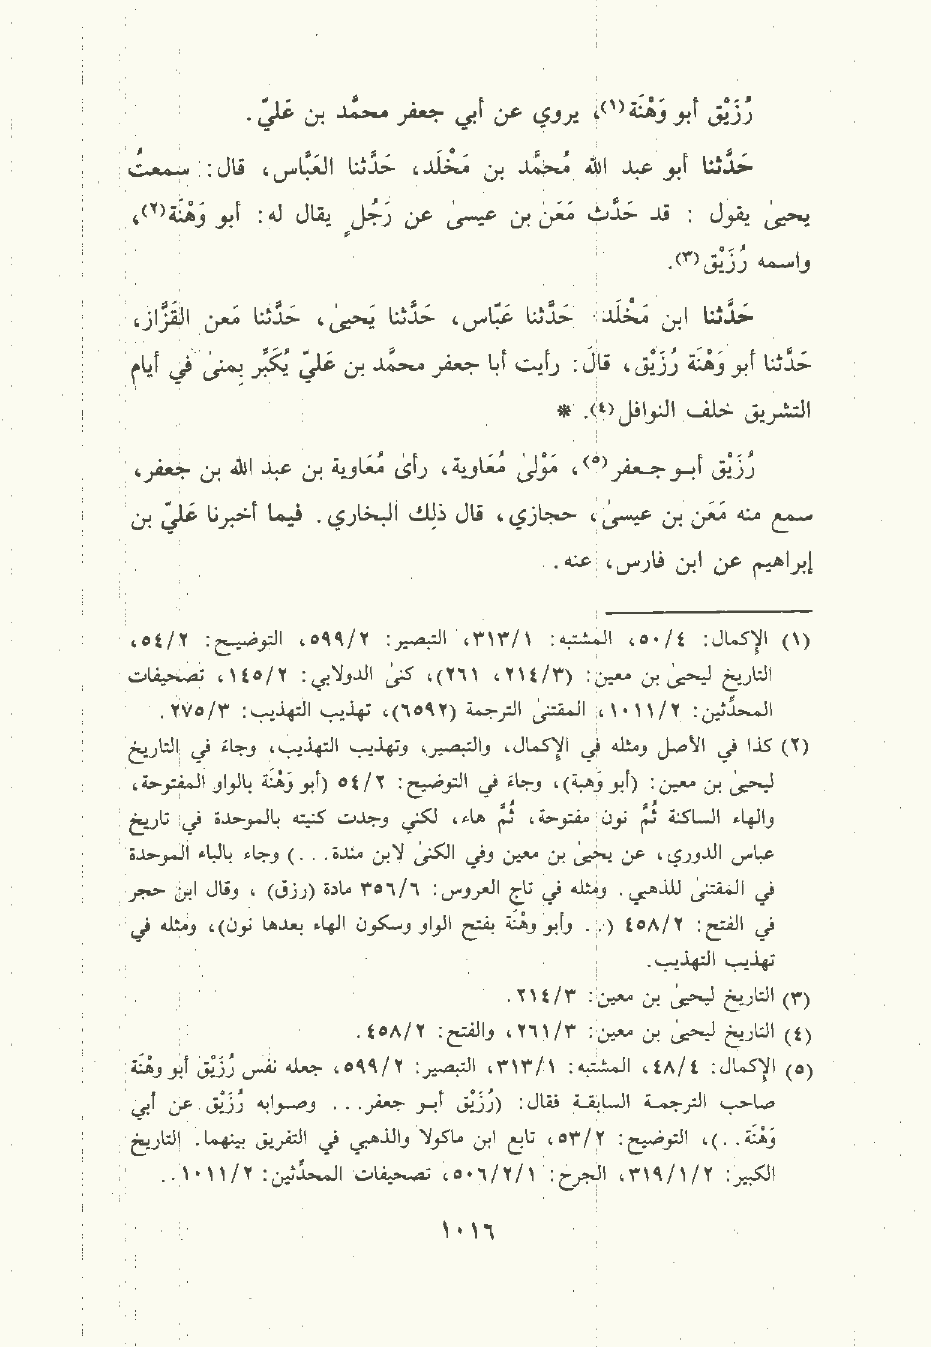 رُزَيْق أبو وَهْنَة(١)، يروي عن أبي جعفر محمَّد بن عَليّ.
حَدَّثنا أبو عبد الله مُحمَّد بن مَخْلَد، حَدَّثنا العَبَّاس، قال: سمعتُ
يحيىٰ يقول : قد حَدَّث مَعَن بن عيسىٰ عن رَجُلٍ يقال له: أبو وَهْنَة(٢)،
واسمه رُزَيْق(٣).
حَدَّثنا ابن مَخْلَد حَدَّثنا عَبَّاس، حَدَّثنا يَحيىٰ، حَدَّثنا مَعن القَزَّاز،
حَدَّثنا أبو وَهْنَة رُزَيْق، قالَ: رأيت أبا جعفر محمَّد بن عَليّ يُكَبِّر بمنىٰ في أيام
التشريق خلف النوافل(٤). *
رُزَيْق أبـو جـعفر(٥)، مَوْلىٰ مُعَاوية، رأىٰ مُعَاوية بن عبد الله بن جعفر،
سمع منه مَعَن بن عيسىٰ، حجازي، قال ذٰلك البخاري. فيما أخبرنا عَليّ بن
إبراهيم عن ابن فارس، عنه.
(١) الإكمال: ٥٠/٤، المشتبه: ٣١٣/١، التبصير: ٥٩٩/٢، التوضيح: ٥٤/٢،
التاريخ ليحيىٰ بن معين: (٢١٤/٣، ٢٦١)، كنىٰ الدولابي: ١٤٥/٢، تصحيفات
المحدِّثين: ١٠١١/٢، المقتنىٰ الترجمة (٦٥٩٢)، تهذيب التهذيب: ٢٧٥/٣.
(٢) كذا في الأصل ومثله في الإكمال، والتبصير، وتهذيب التهذيب، وجاءَ في التاريخ
ليحيىٰ بن معين: (أبو وَهبة)، وجاءَ في التوضيح: ٥٤/٢ (أبو وَهْنَة بالواو المفتوحة،
والهاء الساكنة ثُمَّ نون مفتوحة، ثُمَّ هاء، لكني وجدت كنيته بالموحدة في تاريخ
عباس الدوري، عن يحيىٰ بن معين وفي الكنىٰ لابن مندة. . .) وجاء بالباء الموحدة
في المقتنىٰ للذهبي. ومثله في تاج العروس: ٣٥٦/٦ مادة (رزق) ، وقال ابن حجر
في الفتح: ٤٥٨/٢ (. . وأبو وهْنَة بفتح الواو وسكون الهاء بعدها نون)، ومثله في
تهذيب التهذيب.
(٣) التاريخ ليحيىٰ بن معين: ٢١٤/٣.
(٤) التاريخ ليحيىٰ بن معين: ٢٦١/٣، والفتح: ٤٥٨/٢.
(٥) الإكمال: ٤٨/٤، المشتبه: ٣١٣/١، التبصير: ٥٩٩/٢، جعله نفس رُزَيْق أبو وهْنَة
صاحب الترجـمة السابقـة فقال: (رُزَيْق أبـو جعفر. . . وصـوابه رُزَيْق عن أبي
وَهْنَة. . )، التوضيح: ٥٣/٢، تابع ابن ماكولا والذهبي في التفريق بينهما. التاريخ
الكبير: ٣١٩/١/٢، الجرح: ٥٠٦/٢/١، تصحيفات المحدِّثين: ١٠١١/٢. .
١٠١٦